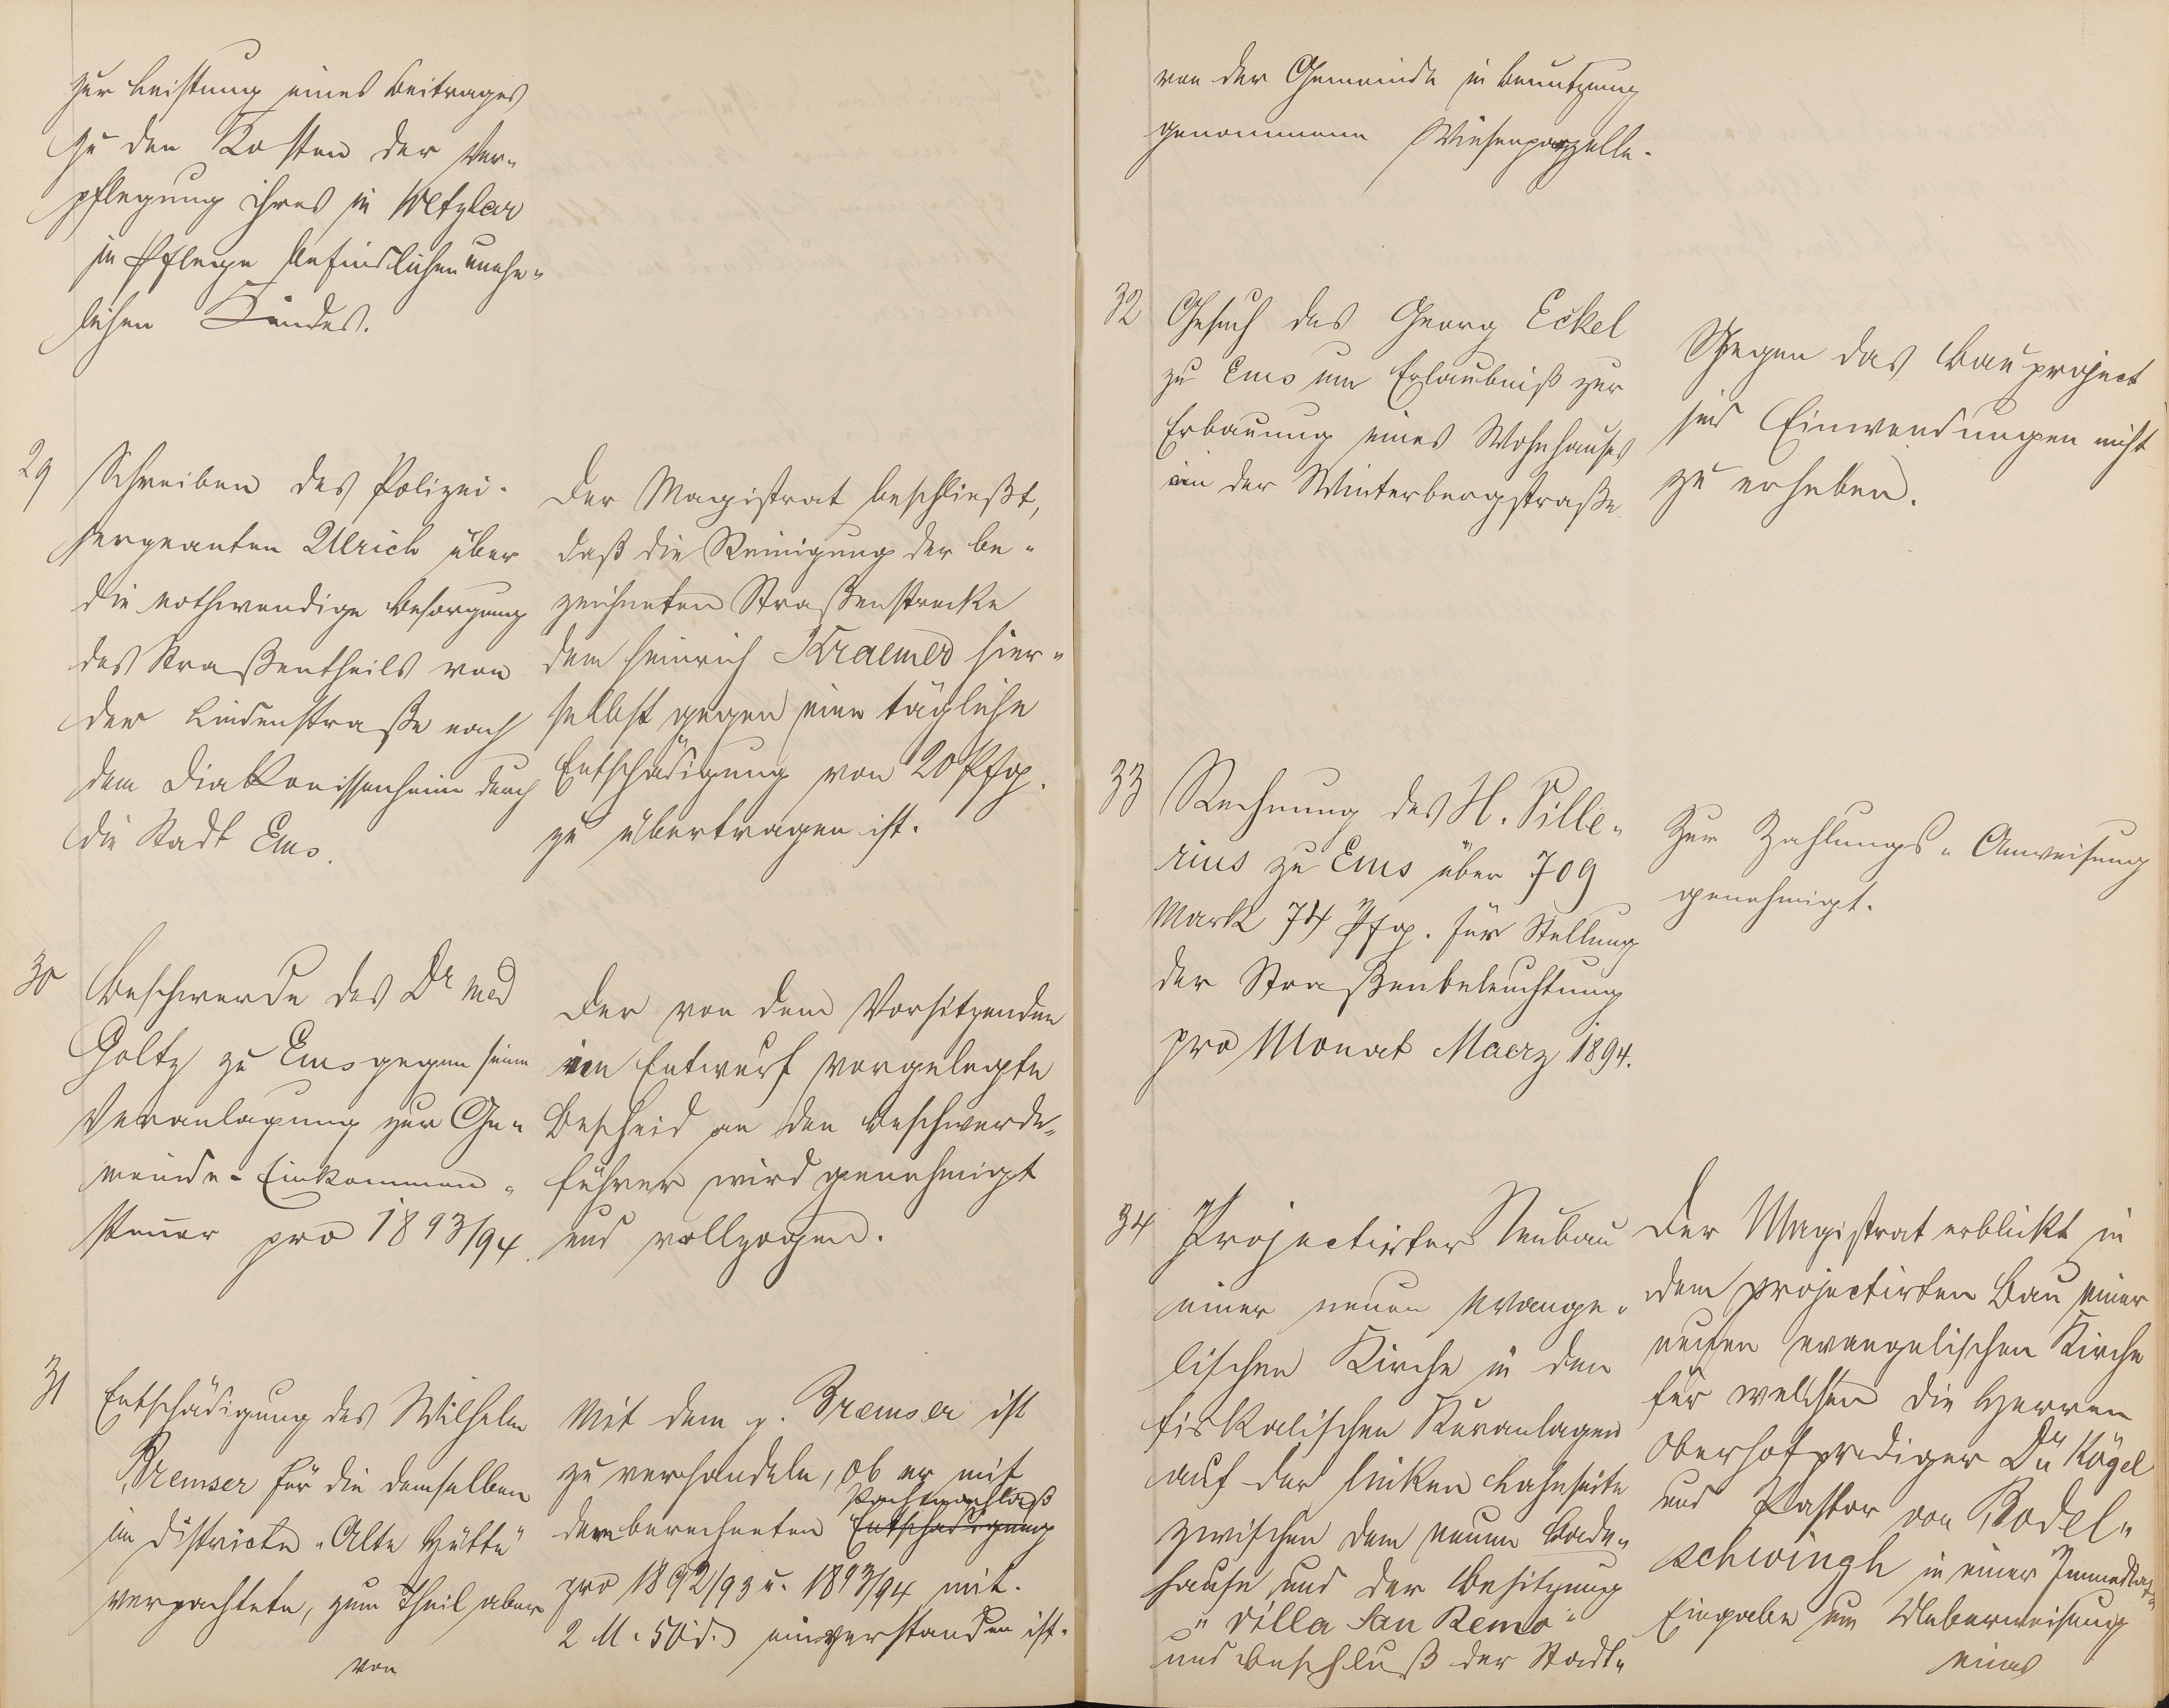 zur Leistung eines Beitrages
zu den Kosten der Ver-
pflegung ihres in Wetzlar
in Pflege befindlichen unehe-
lichen Kindes.
29
Schreiben des Polizei-
sergeanten Ulrich über
die nothwendige Besorgung
des Straßentheils von
der Lindenstraße nach
dem Diakonissenheim durch
die Stadt Ems.
Der Magistrat beschließt,
daß die Reinigung der be-
zeichneten Straßenstrecke
dem Heinrich Kraemer hier-
selbst gegen eine tägliche
Entschädigung von 20 Pfg.
zu übertragen ist.
30
Beschwerde des Dr med
Goltz zu Ems gegen seine
Veranlagung zur Ge-
meinde-Einkommen-
steuer pro 1893/94.
Der von dem Vorsitzenden
im Entwurf vorgelegte
Bescheid an den Beschwerde-
führer wird genehmigt
und vollzogen.
31
Entschädigung des Wilhelm
Bremser für die demselben
im Districte "Alte Hütte"
verpachtete, zum Theil aber
von
Mit dem p. Bremser ist
zu verhandeln, ob er mit
Pachtnachlaß
dem berechneten Entschädigung
pro 1892/93 u. 1893/94 mit
2 M. 50 d. einverstanden ist.
von der Gemeinde in Benutzung
genommene Wiesenparzelle.
32
Gesuch des Georg Eckel
zu Ems um Erlaubniß zur
Erbauung eines Wohnhauses
in der Winterbergstraße
Gegen das Bauproject
sind Einwendungen nicht
zu erheben.
33
Rechnung des H. Sille-
rius zu Ems über 709
Mark 74 Pfg. für Stellung
der Straßenbeleuchtung
pro Monat Maerz 1894.
Zur Zahlungs-Anweisung
genehmigt.
34
Projectirter Neubau
einer neuen evange-
lischen Kirche in den
fiskalischen Kuranlagen
auf der linken Lahnseite
zwischen dem neuen Bade-
hause und der Besitzung
"Villa San Remo"
und Beschluß der Stadt-
Der Magistrat erblickt in
dem projectirten Bau einer
neuen evangelischen Kirche
für welchen die Herren
Oberhofprediger Dr. Kögel
und Pastor von Bodel-
schwingh in einer Immediat-
Eingabe um Ueberweisung
eines